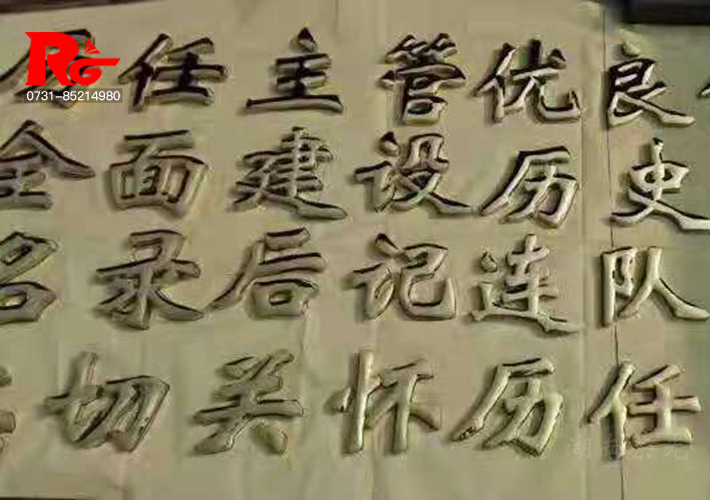 RG
0731-85214980
任主管优良
全面建设历史
名录后记连队
切关怀历任